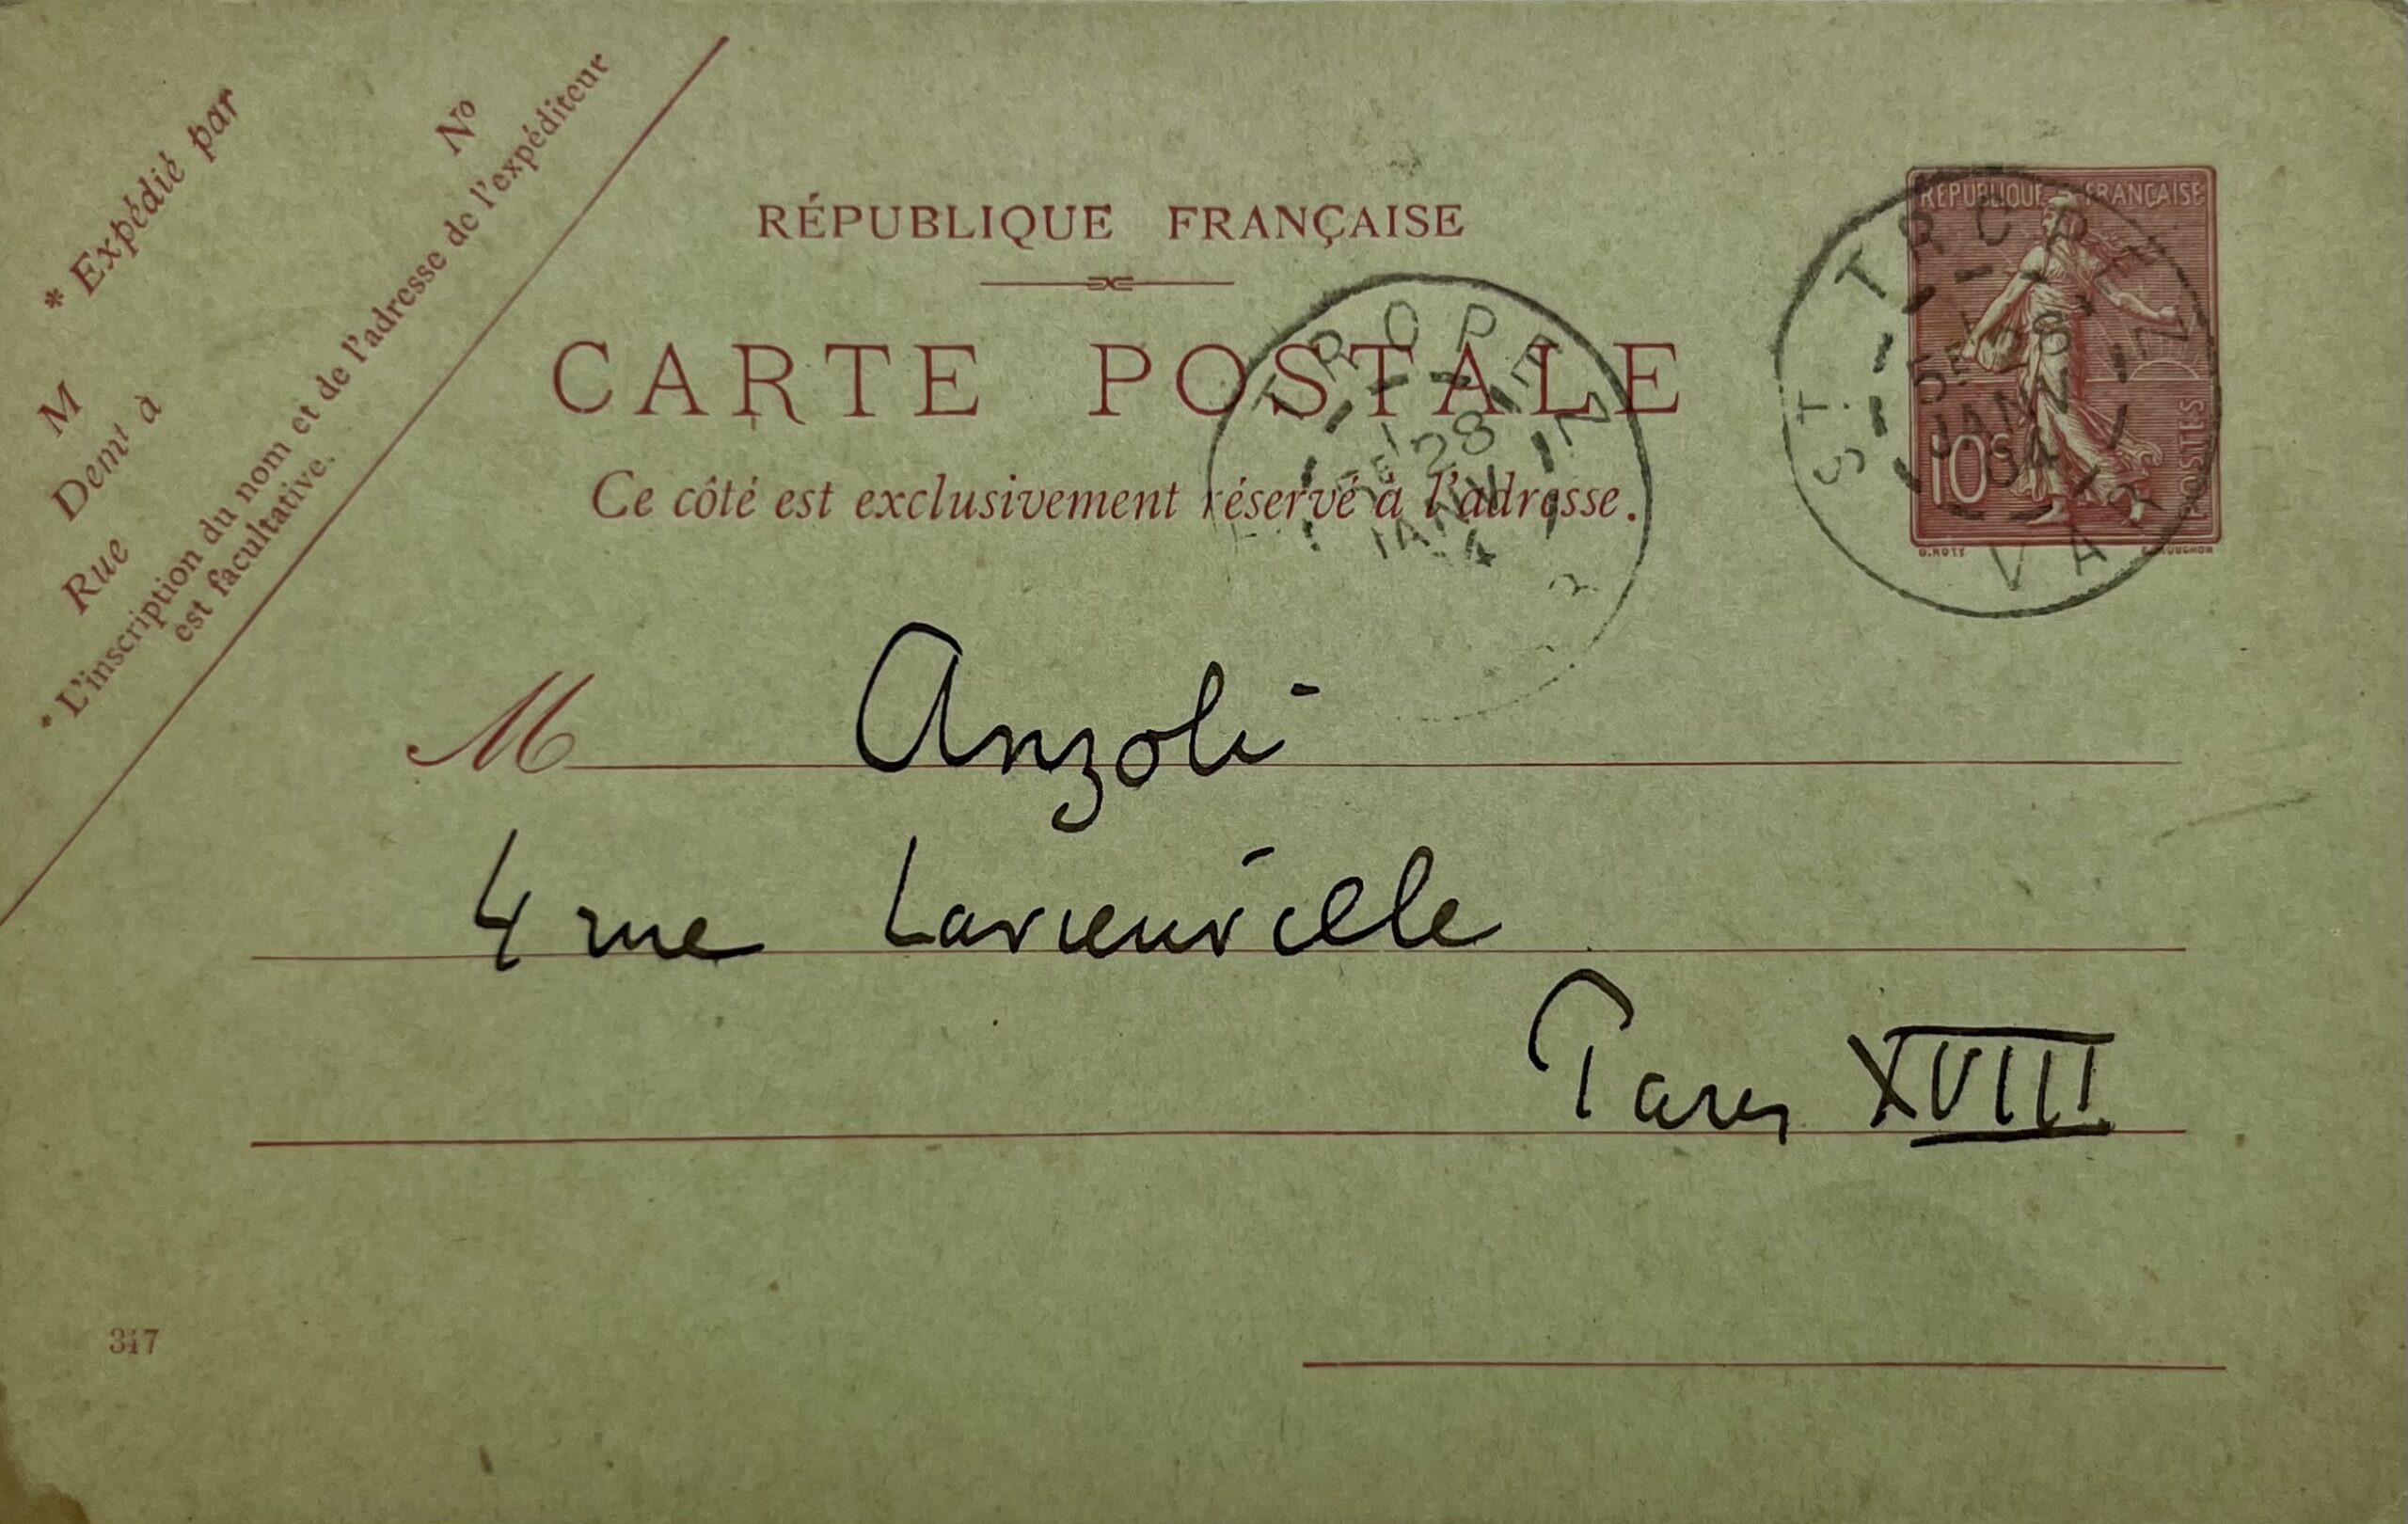 * Expédié par
M
Nº
Demt à
Rue
* L'inscription du nom et de l'adresse de l'expéditeur
est facultative.
RÉPUBLIQUE FRANÇAISE
CARTE POSTALE
Ce côté est exclusivement réservé à l'adresse.
TROPEZ
5E 28
JANV
4
RÉPUBLIQUE FRANÇAISE
10c
POSTES
O. ROTY
E. MOUCHON
ST TROPEZ
5E 28
JANV
04
VAR
M Anzoli
4 rue Lavieuville
Paris XVIII
317